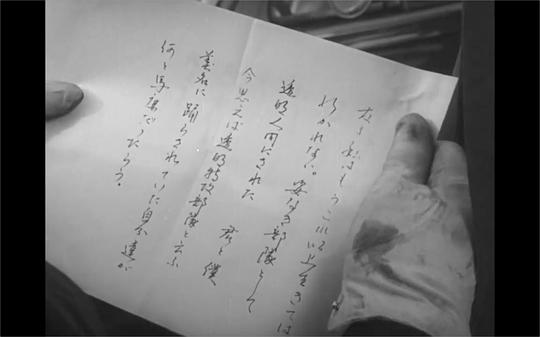 友よ私はもうこれ以上生きては
行かれない。姿なき部隊として
透明人間にされた　君と僕
今思えば透明特攻部隊と云ふ
美名に踊らされていた自分達が
何と馬鹿だったらう。